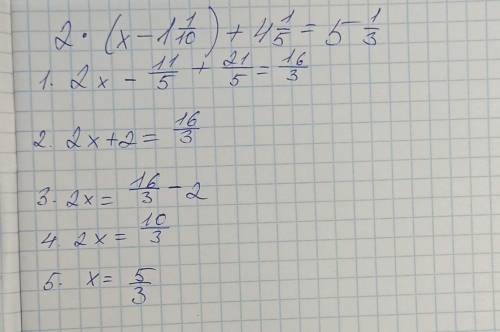 2 · (x - 1 1/10) + 4 1/5 = 5 1/3
1. 2x - 11/5 + 21/5 = 16/3
2. 2x + 2 = 16/3
3. 2x = 16/3 - 2
4. 2x = 10/3
5. x = 5/3